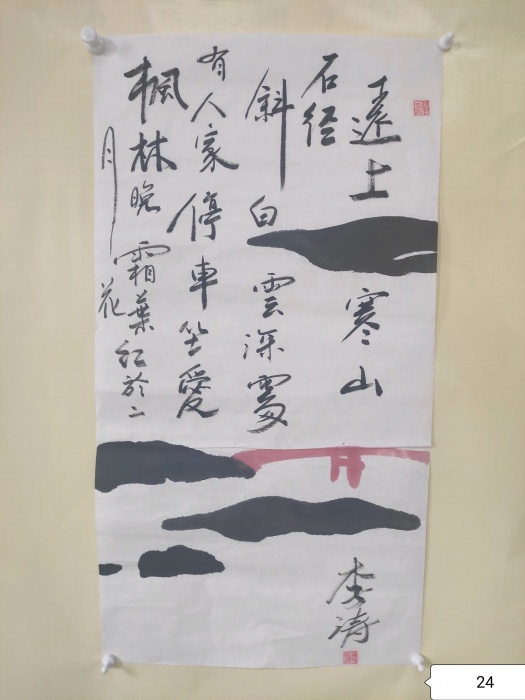 遠上寒山
石径
斜白雲深處
有人家停車坐愛
楓林晚霜葉红於二
月花
李涛
24